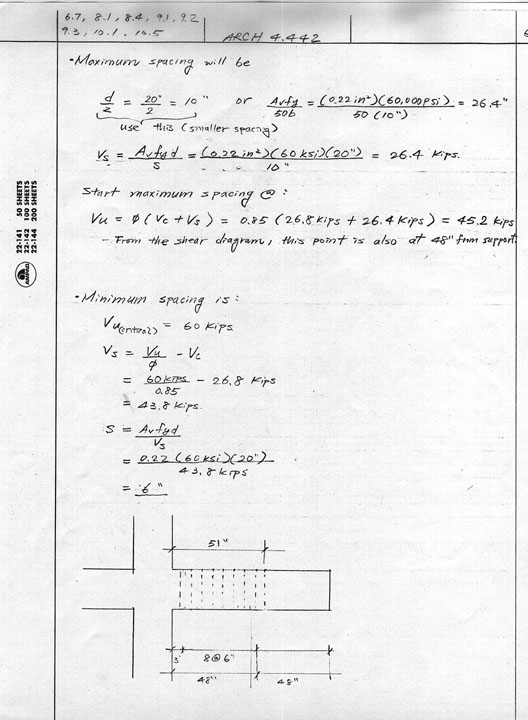 6.7, 8.1, 8.4, 9.1, 9.2
9.3, 10.1, 10.5
ARCH 4.442
• Maximum spacing will be
d/2 = 20"/2 = 10" or Avfy/50b = (0.22 in²)(60,000psi)/50 (10") = 26.4"
use this (smaller spacing)
Vs = Avfyd/s = (0.22 in²)(60 ksi)(20")/10" = 26.4 Kips.
Start maximum spacing @ :
Vu = φ (Vc + Vs) = 0.85 (26.8 kips + 26.4 Kips) = 45.2 kips
- From the shear diagram, this point is also at 48" from support.
22-141 50 SHEETS
22-142 100 SHEETS
22-144 200 SHEETS
• Minimum spacing is :
Vu(critical) = 60 Kips
Vs = Vu/φ - Vc
= 60 kips/0.85 - 26.8 Kips
= 43.8 Kips.
S = Avfyd/Vs
= 0.22 (60 ksi)(20")/43.8 kips
= 6"
51"
3" 8@6"
48" 48"